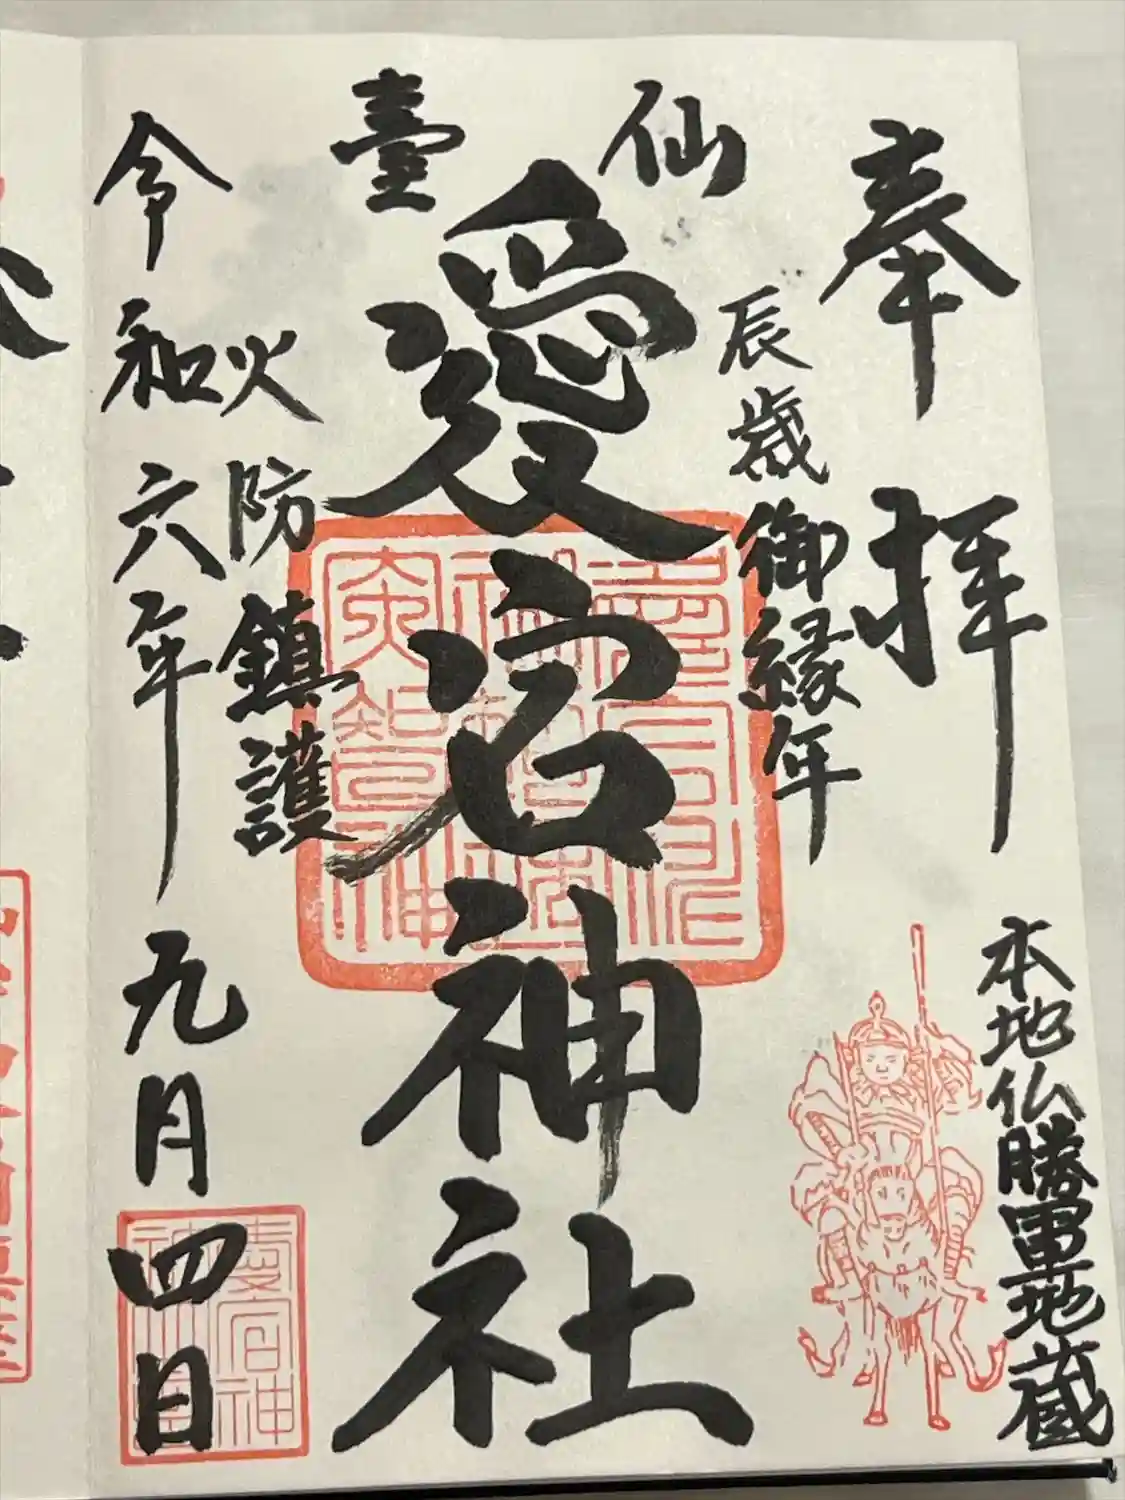 奉拝
本地仏勝軍地蔵
辰歳御縁年
仙臺
愛宕神社
火防鎮護
令和六年九月四日